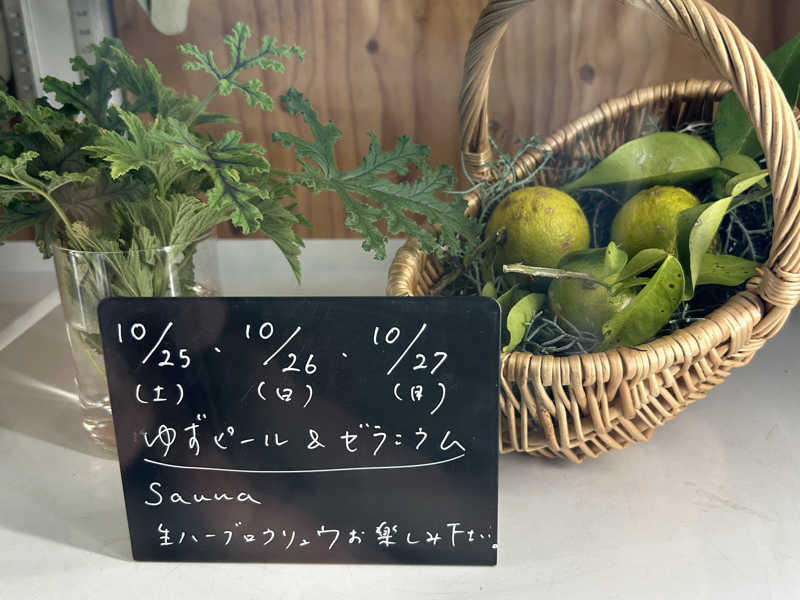 10/25、10/26、10/27
(土) (日) (月)
ゆずピール & ゼラニウム
Sauna
生ハーブロウリュウお楽しみ下さい。